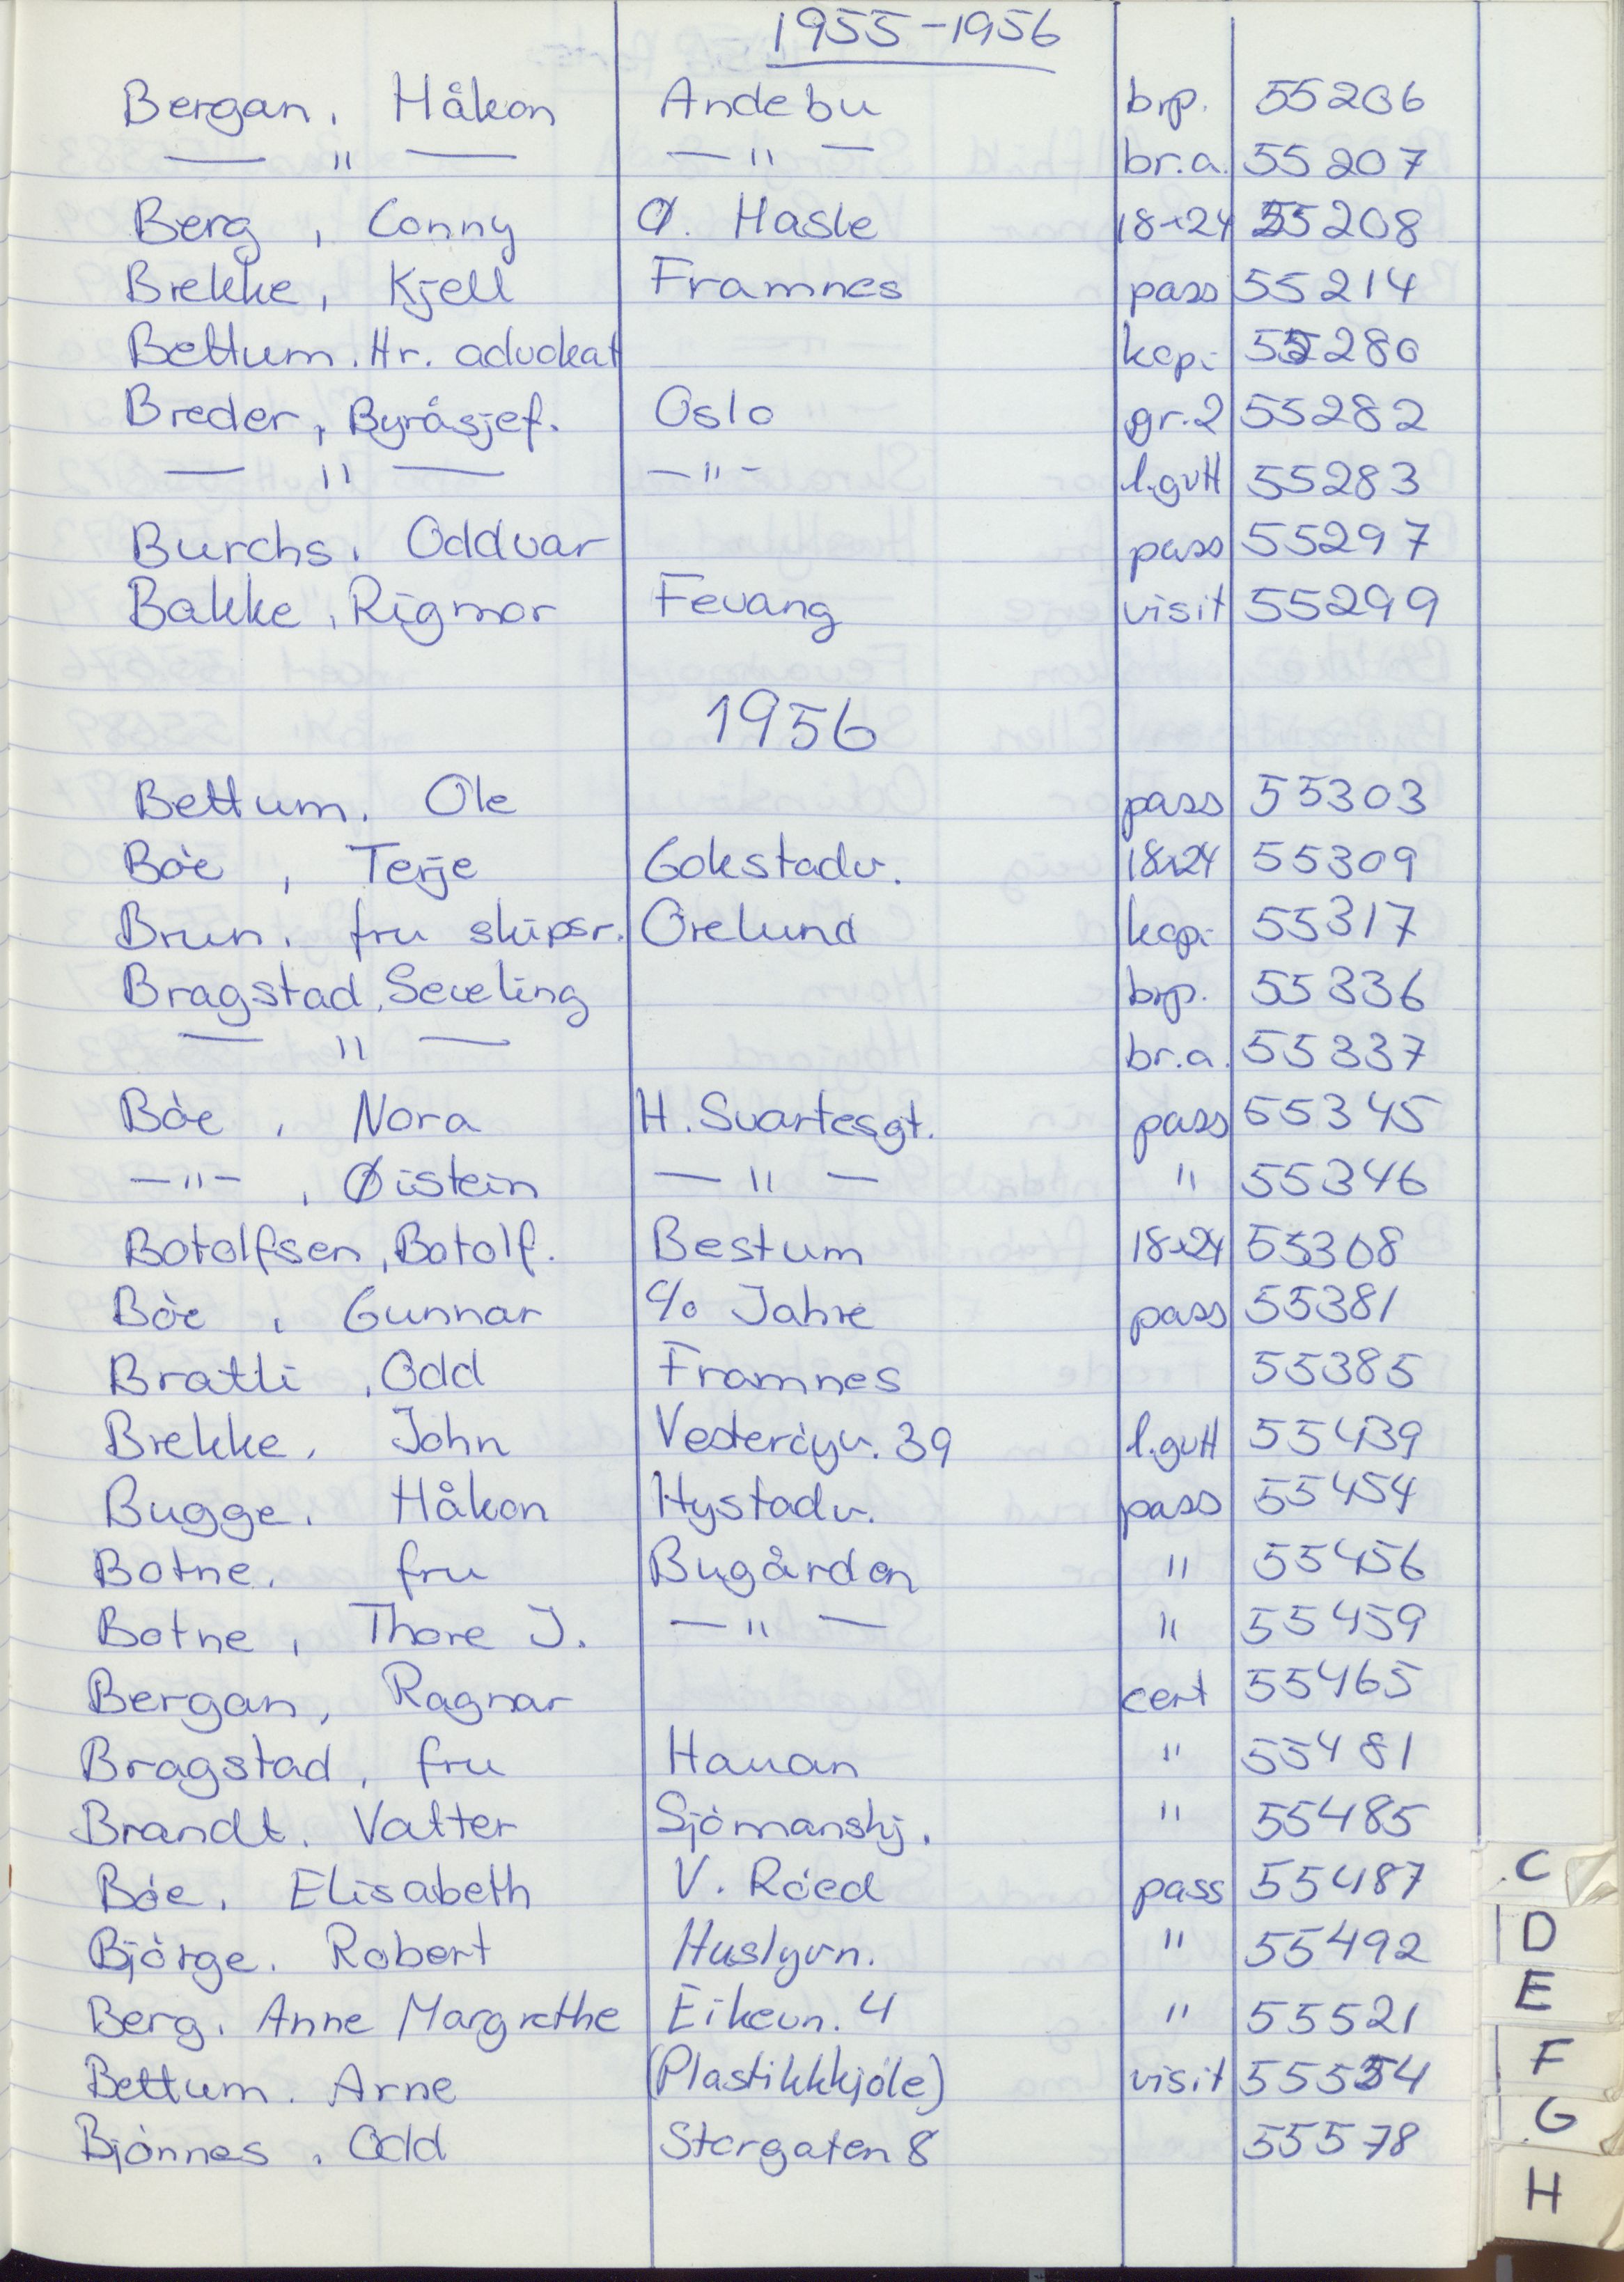 1955-1956
Bergan, Håkon Andebu brp. 55206
— " — — " — br.a. 55207
Berg, Conny Ø. Hasle 18x24 55208
Brekke, Kjell Framnes pass 55214
Bettum. Hr. advokat kopi 55280
Breder, Byråsjef. Oslo gr.2 55282
— " — — " — l.gutt 55283
Burchs, Oddvar pass 55297
Bakke, Rigmor Fevang visit 55299
1956
Bettum. Ole pass 55303
Bøe, Terje Gokstadv. 18x24 55309
Brun. fru skipsr. Orelund kopi 55317
Bragstad, Seveling brp. 55336
— " — br.a. 55337
Bøe, Nora H. Svartesgt. pass 55345
— " —, Øistein — " — " 55346
Botolfsen, Botolf. Bestum 18x24 55308
Bøe, Gunnar c/o Jahre pass 55381
Bratli, Odd Framnes 55385
Brekke, John Vesterøyv. 39 l.gutt 55439
Bugge. Håkon Hystadv. pass 55454
Botne. fru Bugården " 55456
Botne, Thore J. — " — " 55459
Bergan, Ragnar cert 55465
Bragstad, fru Hauan " 55481
Brandt. Valter Sjømanskj. " 55485
Bøe. Elisabeth V. Røed pass 55487
Bjørge. Robert Huslyvn. " 55492
Berg. Anne Margrethe Eikevn. 4 " 55521
Bettum. Arne (Plastikkkjøle) visit 55554
Bjønnes, Odd Storgaten 8 55578
C
D
E
F
G
H